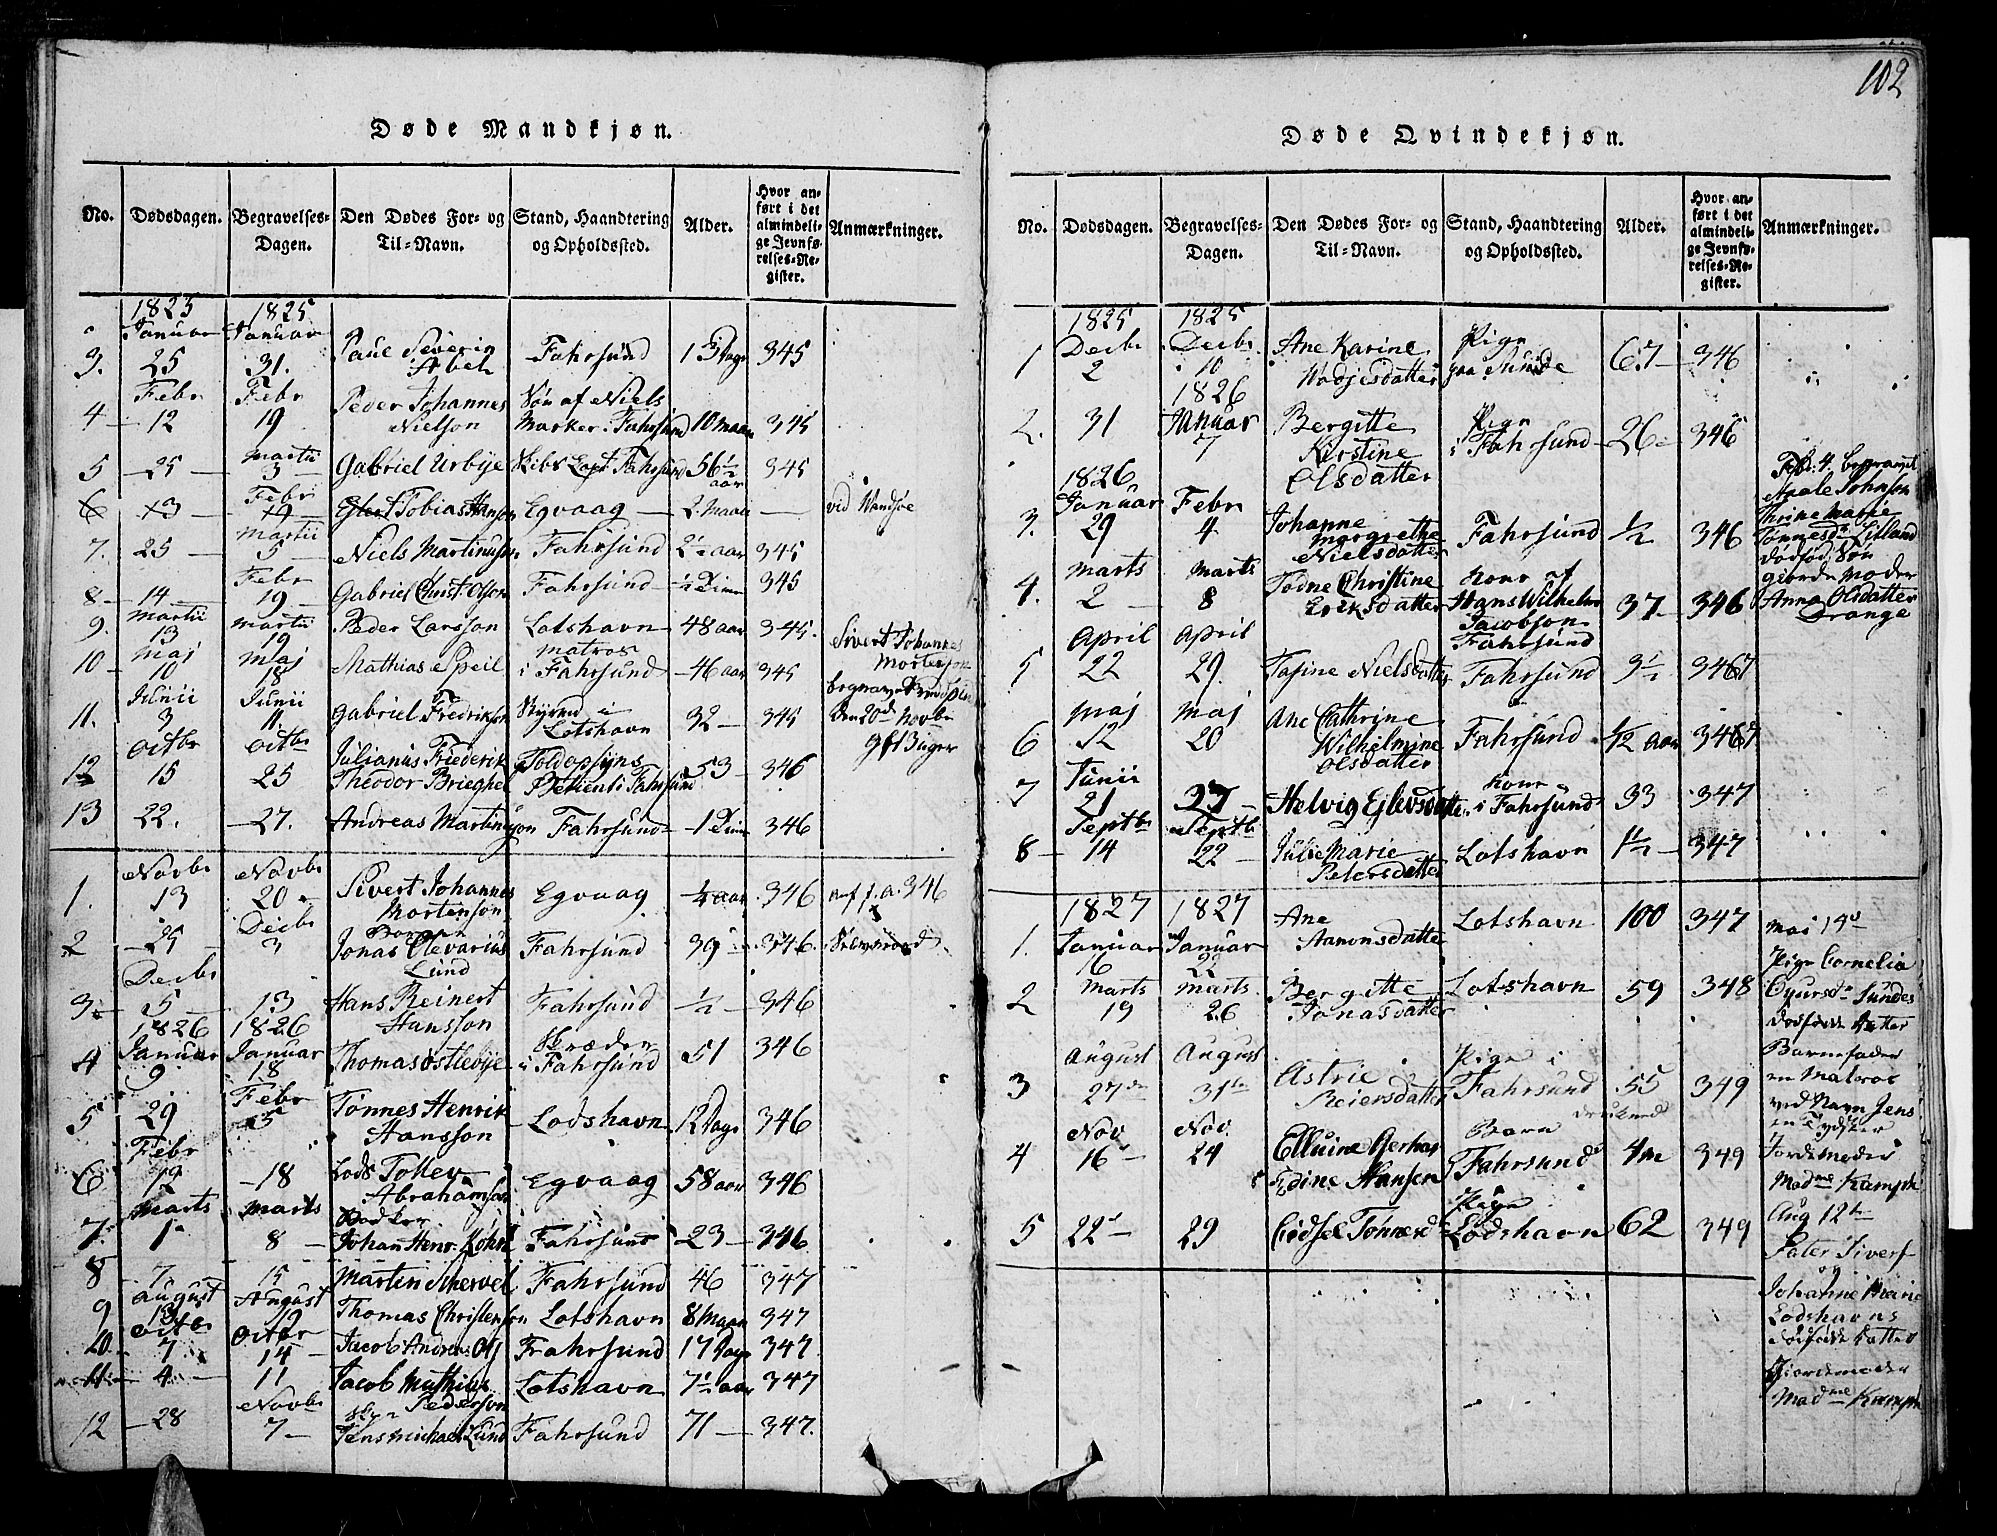 102
Døde Mandkjøn.
No. Dødsdagen. Begravelses-Dagen. Den Dødes For- og Til-Navn. Stand, Haandtering og Opholdssted. Alder. Hvor anført i det almindelige Jevnførelses-Register. Anmærkninger.
1825 1825
Januar Januar
3. 25 31. Paul Severin Abel Fahrsund 13 Dage 345
Febr Febr
4 12 19 Peder Johannes Nielson Søn af Niels Marker i Fahrsund 10 maan 345
Martii
5 25 3 Gabriel Urbye Skibs Capt. Fahrsund 56 1/2 aar 345
Febr
6 13 19 Tobias Hanson Egvaag 2 maan vid Vandsøe
Martii
7. 25 5 Niels Martinusen Fahrsund 2 1/2 aar 345
Febr
8 14 19 Gabriel Christ. Olson Fahrsund 1/2 Dim 345
Martii Martii
9. 13 19 Peder Larsson Lotshavn 48 aar 345.
Maj Maj
10 10 18 Mathias Speil matros i Fahrsund 46 aar 345
Sivert Johannes Mortenson
Junii Junii
11. 3 11 Gabriel Fredrikson Lotshavn 32 345
den 20de Novbr
Octbr Octbr
12 15 25 Julianus Friederik Theodor Brieghel Toldopsyns Betient i Fahrsund 53 346
13 22. 27. Andreas Martinuson Fahrsund 1 Dim 346
Novbr Novbr
1. 13 20 Sivert Johannes Mortenson Egvaag 1/4 aar 346
Decbr
2 25 3 Jonas Olevarius Lund Fahrsund 39 346.
Decbr
3 5 13 Hans Reinert Hansson Fahrsund 1/2 346
1826 1826
Januar Januar
4 9 18 Thomas Østlebye Skræder i Fahrsund 51 346
Febr
5 29 5 Tønnes Henrik Hansson Lodshavn 12 Dage 346
Febr
6 12 18 Lods Tollev Abrahamson Egvaag 58 aar 346
Marts Marts
7. 1 8 Bødker Johan Henr. Köhn Fahrsund 23 346
8 7 15 Martin Fahrsund 46 347
August August
9 13 19 Thomas Christenson Lotshavn 8 Maan 347
Octbr Octbr
10 7 14 Jacob Andreas Fahrsund 17 Dage 347
11 4 11 Jacob Mathias Pederson Lotshavn 7 1/2 aar 347
Novbr
12 28 7 Jens Michael Lund Fahrsund 71 347.
Døde Qvindekjøn.
No. Dødsdagen. Begravelses-Dagen. Den Dødes For- og Til-Navn. Stand, Haandtering og Opholdssted. Alder. Hvor anført i det almindelige Jevnførelses-Register. Anmærkninger.
1825 1825
Decbr Decbr
1 2 10 Ane Karine Pige paa Sunde 67 346
1826
Januar
2. 31 7 Bergitte Kirstine Olsdatter Pige i Fahrsund 26 346
1826
Januar Febr
3. 29 4 Johanne Margrethe Nielsdatter Fahrsund 1/2 346
Febr: 4. begravet
Aale Johnson
Thrine Marie
Tønnesdr Lilland
dødfød Søn
giorde Moder
Anna Olsdatter
Drange
Marts Marts
4. 2 8 Todne Christine Eriksdatter Kone af Hans Wilhelm Jacobson Fahrsund 37 346
April April
5 22 29. Tasine Nielsdatter Fahrsund 3 1/2 3467
Maj Maj
6 12 20 Ane Cathrine Wilhelmine Olsdatter Fahrsund 1/2 aar 3467
Junii
7 21 27 Helvig Ejlevsdatter Kone i Fahrsund 33 347
Septbr Septbr
8 14 22 Julie Marie Petersdatter Lotshavn 1 1/2 347
1827 1827
1. Januar 16 Januar 22 Ane Aanonsdatter Lotshavn 100 347
Marts Marts
2 19 26 Bergitte Jonasdatter Lotshavn 59 348
mai 19d
Pige Cornelia
Sundes
dødfødt Datter
Barnefader
en Matros
ved Navn Jens
en Tydsker
Jordemoder
Madme Kamph
August August
3 27de 31te Astrie Reiersdatter Pige i Fahrsund 55 349
Nov Nov.
4 16 24 Elluine Gerhardine Hansen Barn Fahrsund 4m 349
5 22 29 Gødsel Tønnesd Pige Lodshavn 62 349
Aug 12te
Pater Sivers
og
Johanne Marie
Lodshavns
dødfødt Datter
Giordemoder
Madme Kamph